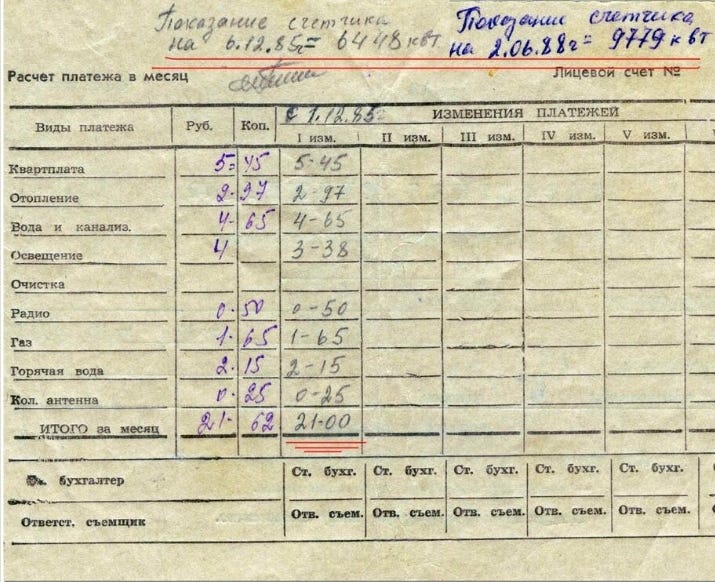 Показание счетчика
на 6.12.85г= 6448 квт
Показание счетчика
на 2.06.88г= 9779 квт
Расчет платежа в месяц
Лицевой счет №
Виды платежа Руб. Коп. с 1.12.85г ИЗМЕНЕНИЯ ПЛАТЕЖЕЙ
I изм. II изм. III изм. IV изм. V изм.
Квартплата 5= 45 5-45
Отопление 2- 97 2-97
Вода и канализ. 4- 65 4-65
Освещение 4 3-38
Очистка
Радио 0- 50 0-50
Газ 1- 65 1-65
Горячая вода 2- 15 2-15
Кол. антенна 0- 25 0-25
ИТОГО за месяц 21- 62 21-00
бухгалтер Ст. бухг. Ст. бухг. Ст. бухг. Ст. бухг. Ст. бухг.
Ответст. съемщик Отв. съем. Отв. съем. Отв. съем. Отв. съем. Отв. съем.